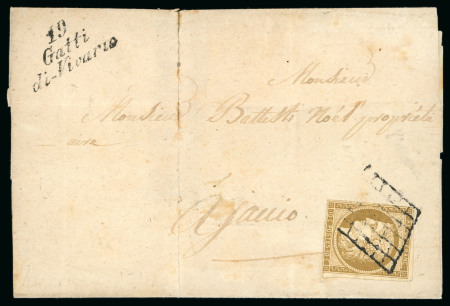 19
Gatti
di-Vivario
Monsieur
Monsieur Battesti Noël propriété
aire
Ajaccio